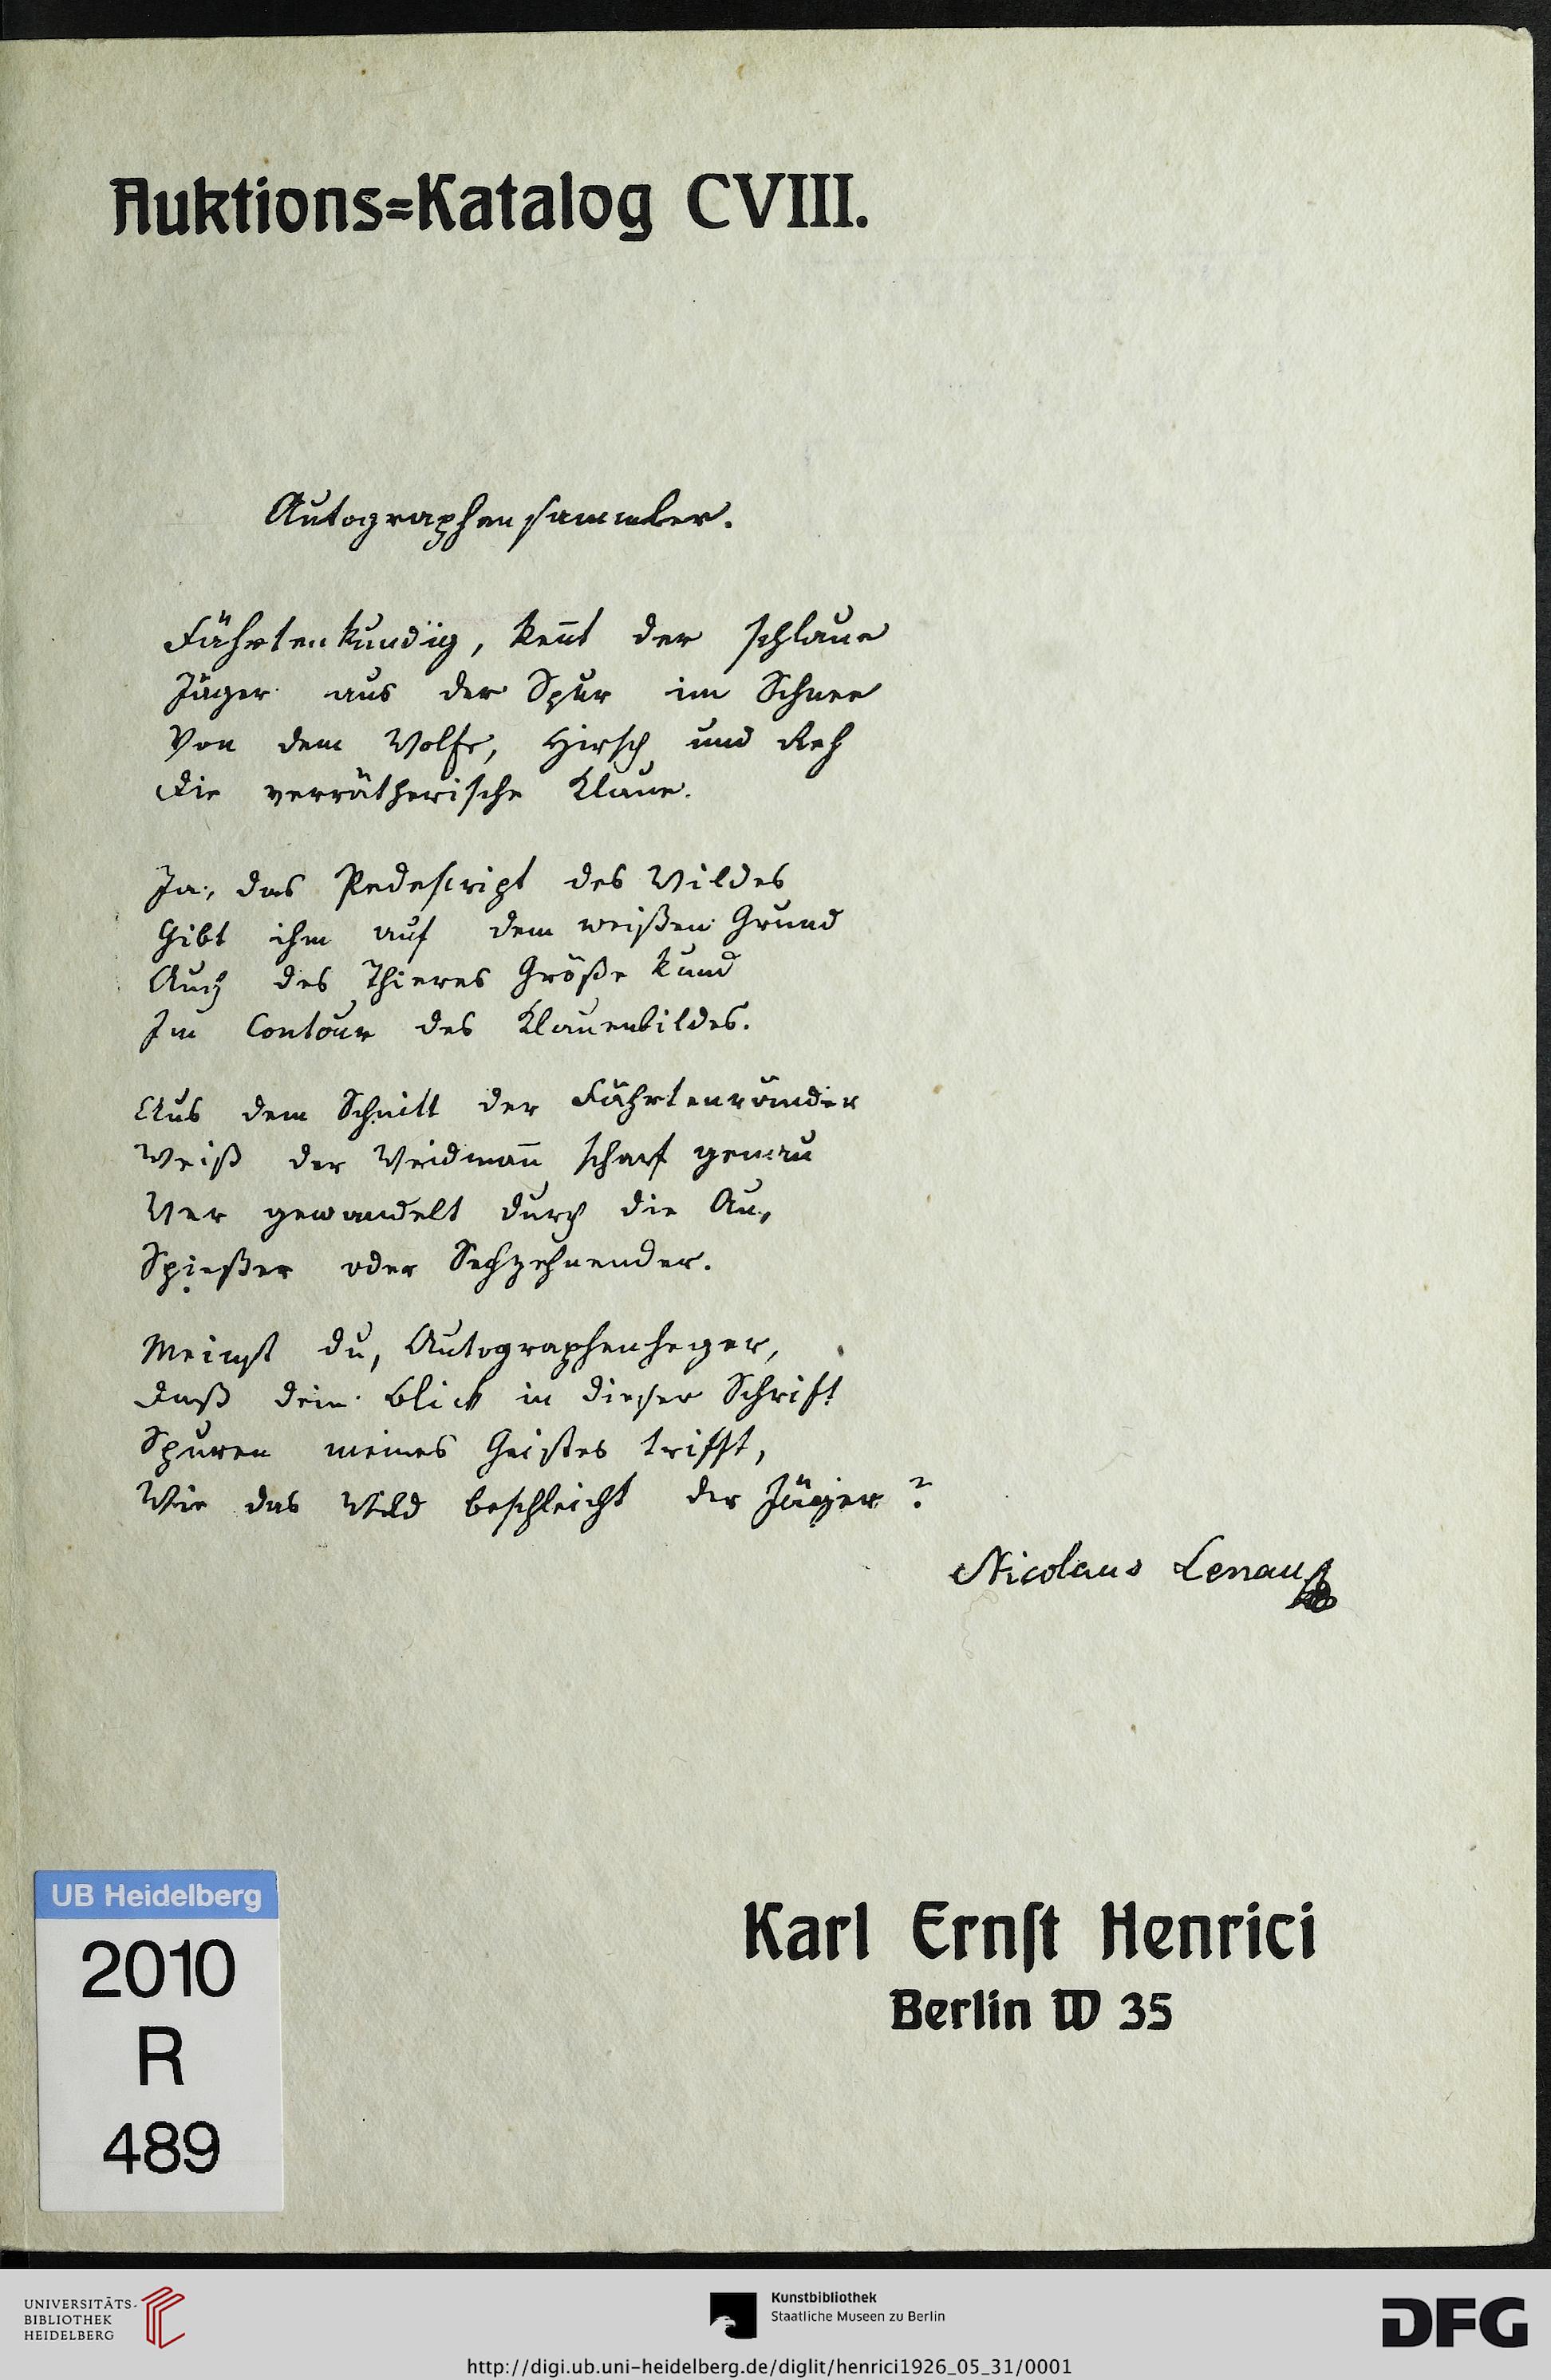 Auktions=Katalog CVIII.
Autographensammler.
Fährtenkundig, keñt der schlaue
Jäger aus der Spur im Schnee
Von dem Wolfe, Hirsch und Reh
Die verrätherische Klaue.
Ja, das Pedescript des Wildes
Gibt ihm auf dem weißen Grund
Auch des Thieres Größe kund
Im Contour des Klauenbildes.
Aus dem Schnitt der Fährtenränder
Weiß der Weidmañ scharf genau
Wer gewandelt durch die Au,
Spießer oder Sechzehnender.
Meinst du, Autographenheger,
Daß dein Blick in dieser Schrift
Spuren meines Geistes trifft,
Wie das Wild beschleicht der Jäger?
Nicolaus Lenau
UB Heidelberg
2010
R
489
Karl Ernſt Henrici
Berlin W 35
UNIVERSITÄTS-
BIBLIOTHEK
HEIDELBERG
Kunstbibliothek
Staatliche Museen zu Berlin
DFG
http://digi.ub.uni-heidelberg.de/diglit/henrici1926_05_31/0001